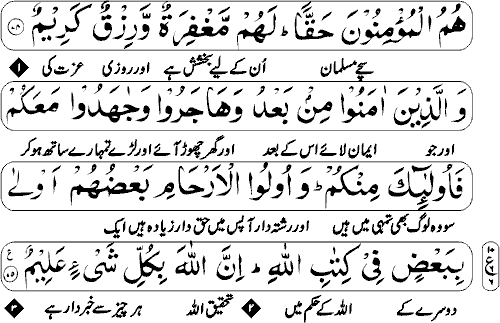 هُمُ الْمُؤْمِنُوْنَ حَقًّا ؕ لَهُمْ مَّغْفِرَةٌ وَّرِزْقٌ كَرِيْمٌ ﴿۷۴﴾
سچے مسلمان اُن کے لیے بخشش ہے اور روزی عزت کی ۱
وَ الَّذِيْنَ اٰمَنُوْا مِنْۢ بَعْدُ وَهَاجَرُوْا وَجٰهَدُوْا مَعَكُمْ
اور جو ایمان لائے اس کے بعد اور گھر چھوڑ آئے اور لڑے تمہارے ساتھ ہو کر
فَاُولٰٓئِكَ مِنْكُمْ ؕ وَ اُولُوا الْاَرْحَامِ بَعْضُهُمْ اَوْلٰى
سو وہ لوگ بھی تمہی میں ہیں اور رشتہ دار آپس میں حق دار زیادہ ہیں ایک
بِبَعْضٍ فِيْ كِتٰبِ اللّٰهِ ؕ اِنَّ اللّٰهَ بِكُلِّ شَيْءٍ عَلِيْمٌ ﴿۷۵﴾ ۱۰ ع ۶
دوسرے کے اللہ کے حکم میں ۲ تحقیق اللہ ہر چیز سے خبردار ہے ۳